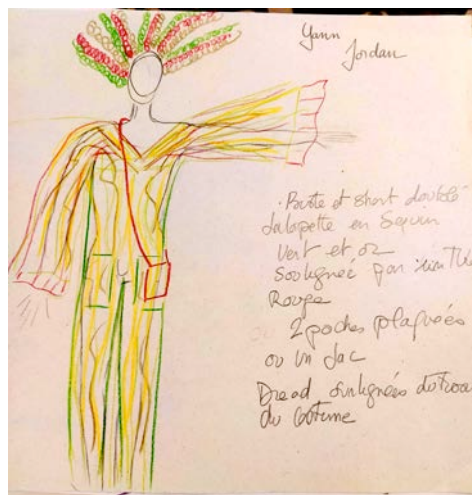 Yann
Jordan
et short doublé
Salopette en Sequin
Vert et or
Soulignée par
Rouge
2 poches plaquées
ou un sac
Dread soulignées du
du costume